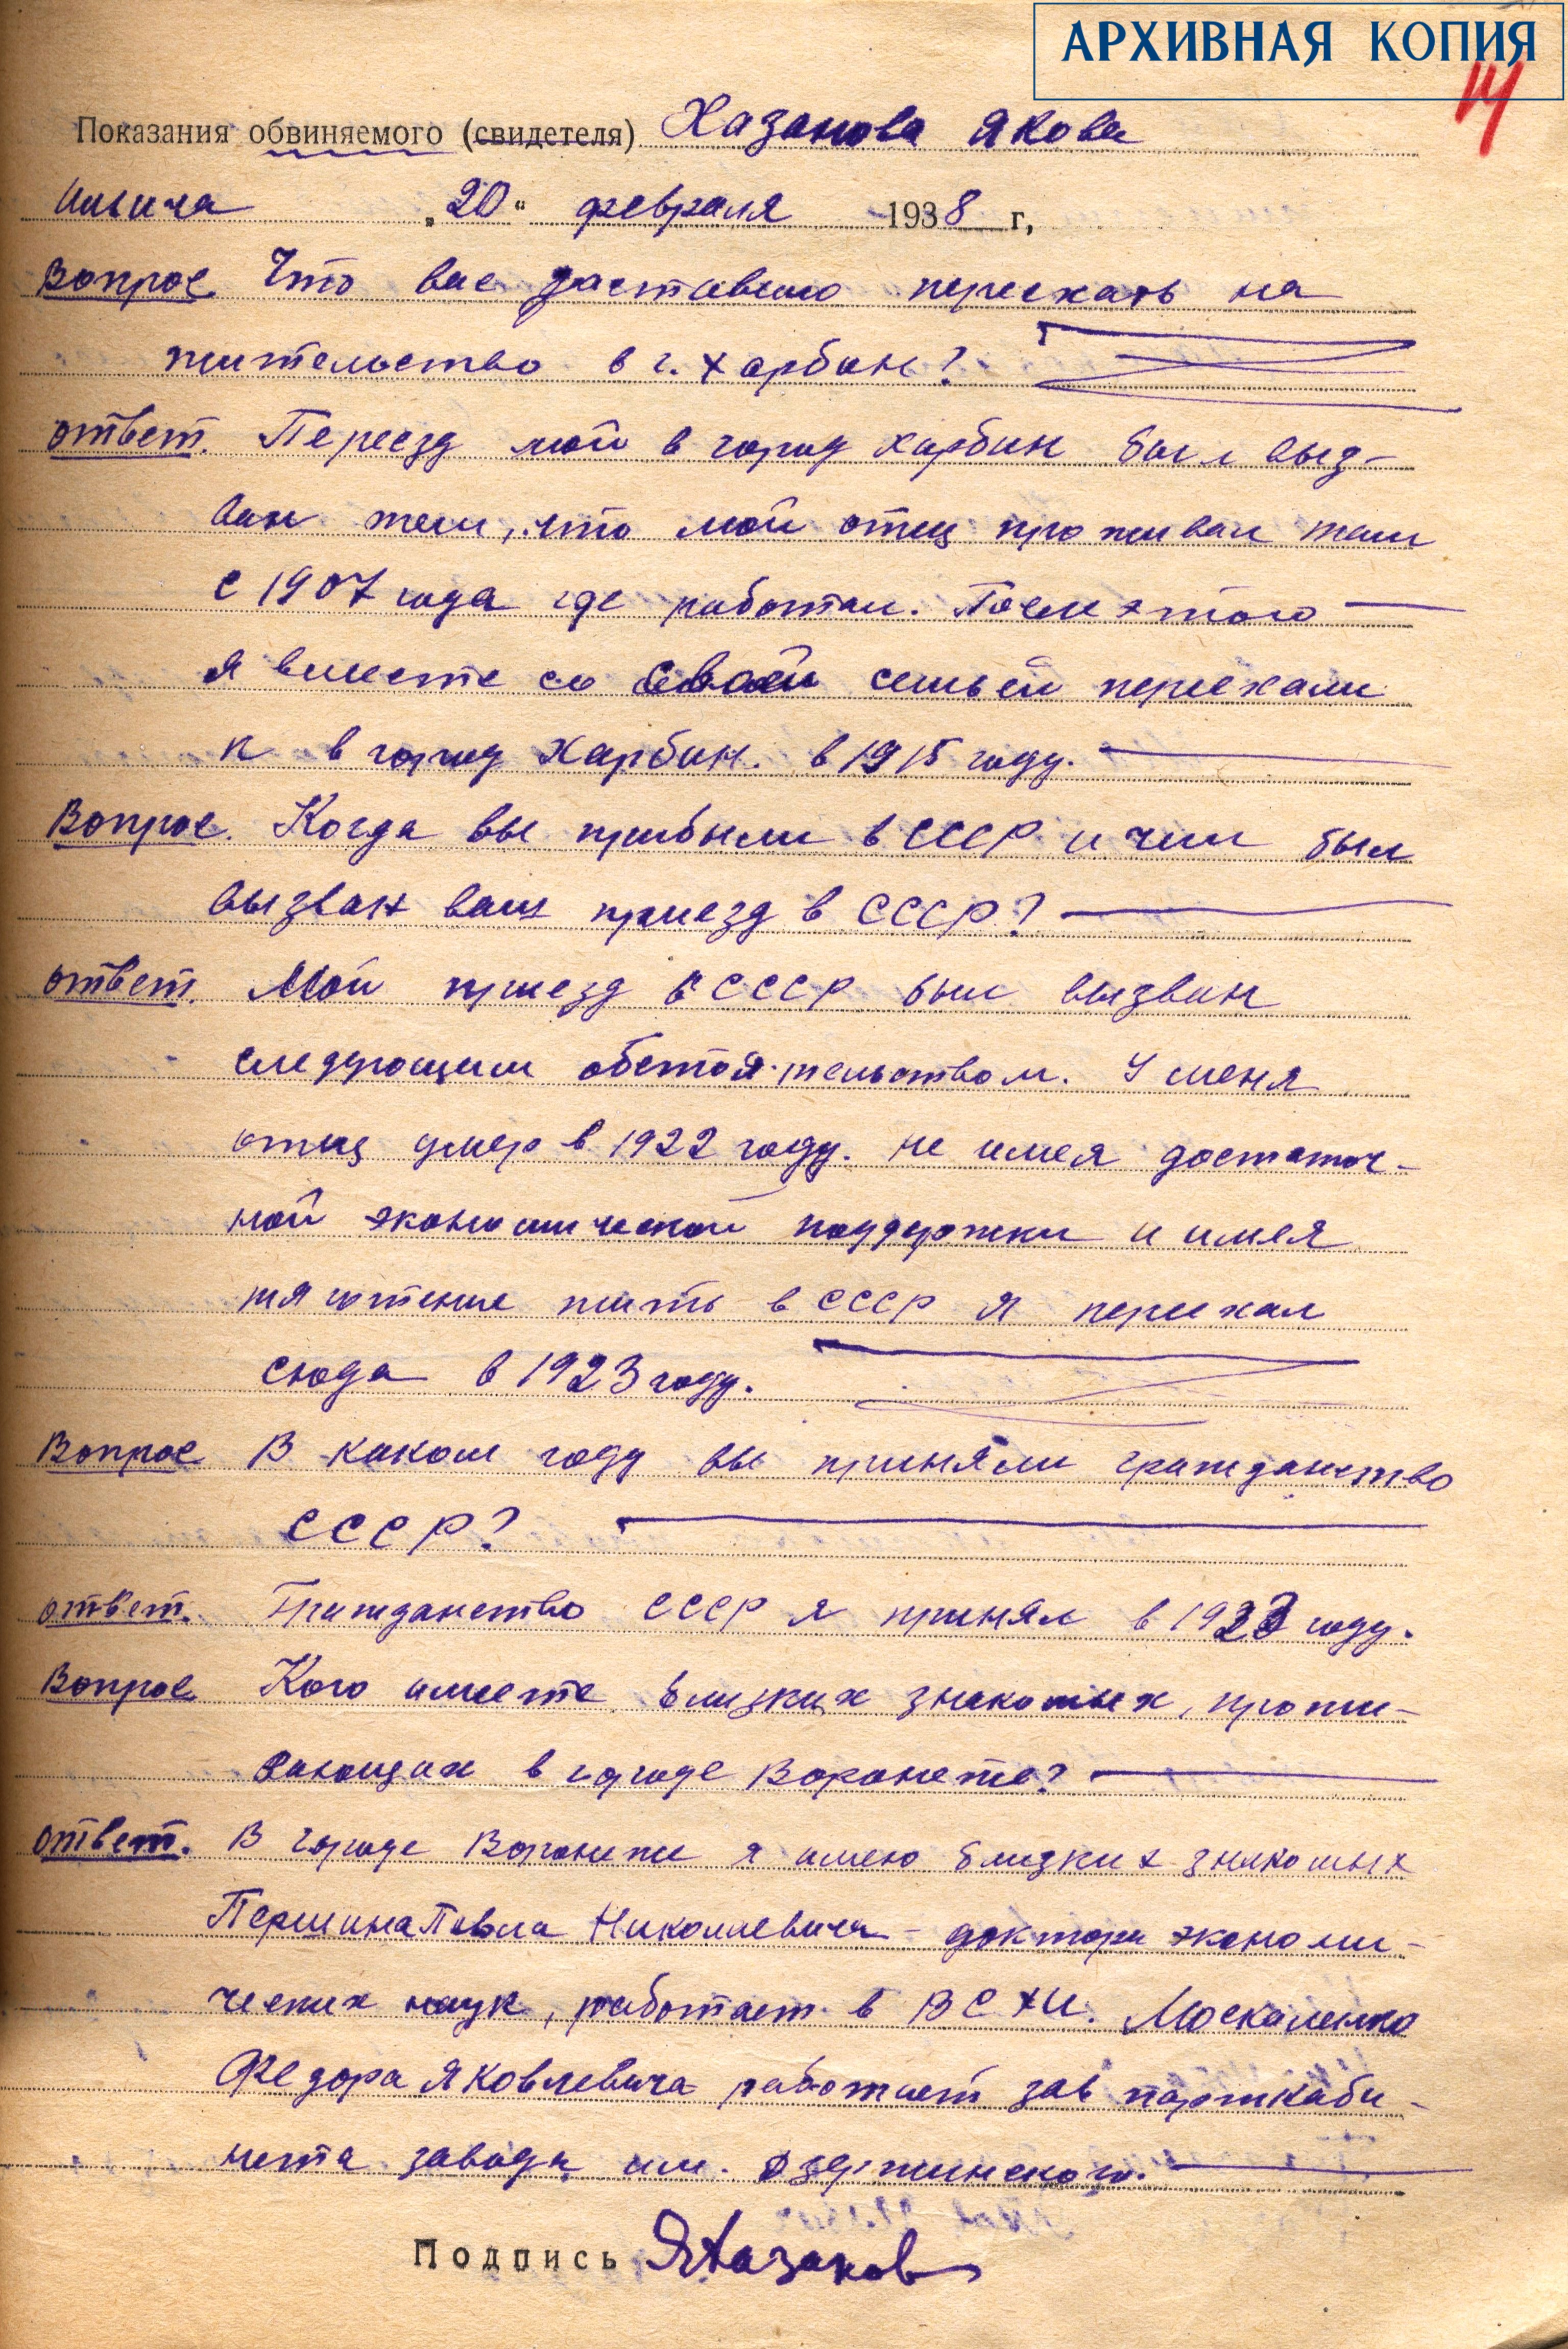 АРХИВНАЯ КОПИЯ
14
Показания обвиняемого (свидетеля) Хазанова Якова
Ильича „20“ февраля 1938 г,
Вопрос Что вас заставило переехать на
жительство в г. Харбин?
ответ. Переезд мой в город Харбин был выз-
ван тем, что мой отец проживал там
с 1907 года где работал. После этого
я вместе со своей семьей переехали
к в город Харбин. в 1915 году.
Вопрос. Когда вы прибыли в СССР и чем был
вызван ваш приезд в СССР?
ответ. Мой приезд в СССР был вызван
следующим обстоятельством. У меня
отец умер в 1922 году. не имея достаточ-
ной экономической поддержки и имея
тяготение жить в СССР я переехал
сюда в 1923 году.
Вопрос В каком году вы приняли гражданство
СССР?
ответ. Гражданство СССР я принял в 1923 году.
Вопрос Кого имеете близких знакомых, прожи-
вающих в городе Воронеже?
ответ. В городе Воронеже я имею близких знакомых
Першина Павла Николаевича - доктора экономи-
ческих наук, работает в ВСХИ. Москаленко
Федора Яковлевича работает зав парткаби-
нета завода им. Дзержинского.
Подпись ЯХазанов